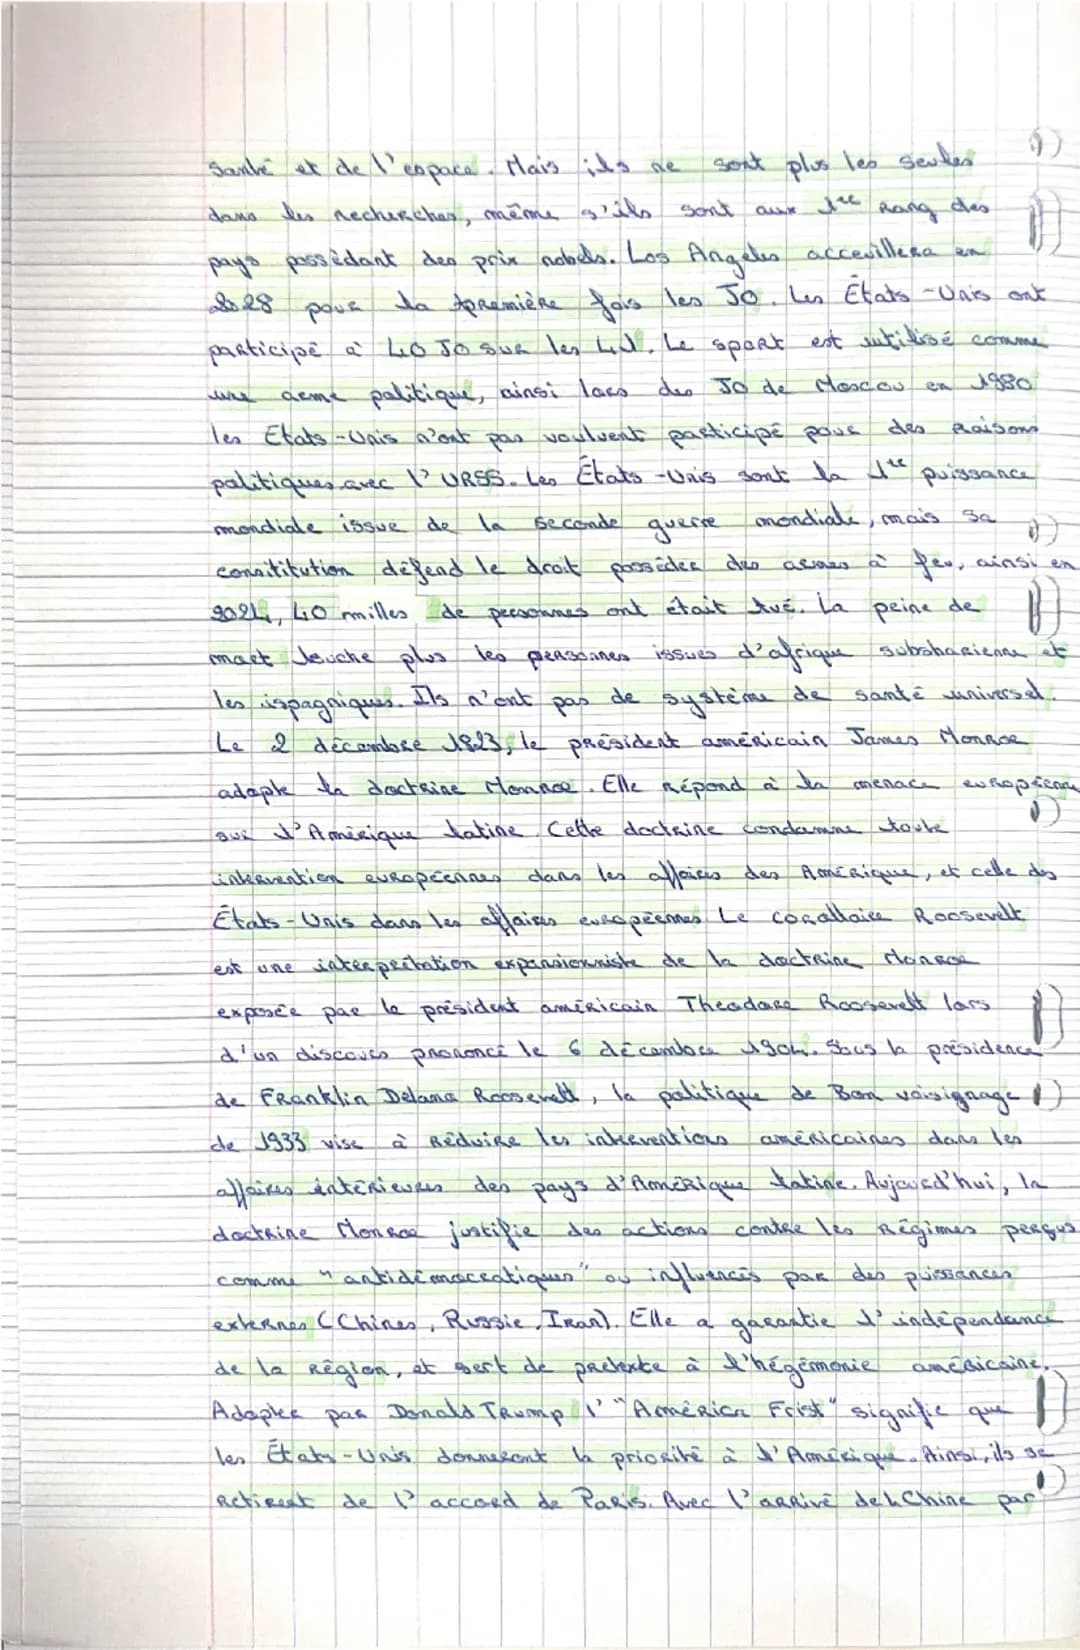 santé et de l'espace. Mais ils ne sont plus les seules
dans les recherches, même s'ils sont aux 1re Rang des
pays possèdant des prix nobels. Los Angeles accevillera en
2028 pour la première fois les JO. Les États-Unis ont
participé à 40 JO sur les 41. Le sport est utilisé comme
une arme politique, ainsi lors des JO de Moscou en 1980
les États-Unis n'ont pas voulvent participé pour des Raisons
politiques avec l'URSS. Les États-Unis sont la 1re puissance
mondiale issue de la seconde guerre mondiale, mais sa
consititution défend le droit possèder des armes à feu, ainsi en
2024, 40 milles de personnes ont était tué. La peine de
mort touche plus les personnes issues d'afrique subsharienne et
les ispagniques. Ils n'ont pas de système de santé universel.
Le 2 décembre 1823, le président américain James Monroe
adopte la doctrine Monroe. Elle répond à la menace européenne
sur l'Amérique latine. Cette doctrine condamne toute
intervention européennes dans les affaires des Amérique, et celle des
États-Unis dans les affaires européennes. Le corollaire Roosevelt
est une interprétation expansionniste de la doctrine Monroe
exposée par le président américain Theodore Roosevelt lors
d'un discours prononcé le 6 décembre 1904. Sous la présidence
de Franklin Delano Roosevelt, la politique de Bon voisignage
de 1933 vise à Réduire les interventions américaines dans les
affaires intérieures des pays d'Amérique latine. Aujourd'hui, la
doctrine Monroe justifie des actions contre les Régimes perçus
comme "antidémocratiques" ou influencés par des puissances
externes (Chines, Russie, Iran). Elle a garantie l'indépendance
de la Région, et sert de pretexte à l'hégémonie américaine.
Adopter par Donald Trump l'"América Frist" signifie que
les États-Unis donneront la priorité à l'Amérique. Ainsi, ils se
Retirent de l'accord de Paris. Avec l'arrivé de la Chine par